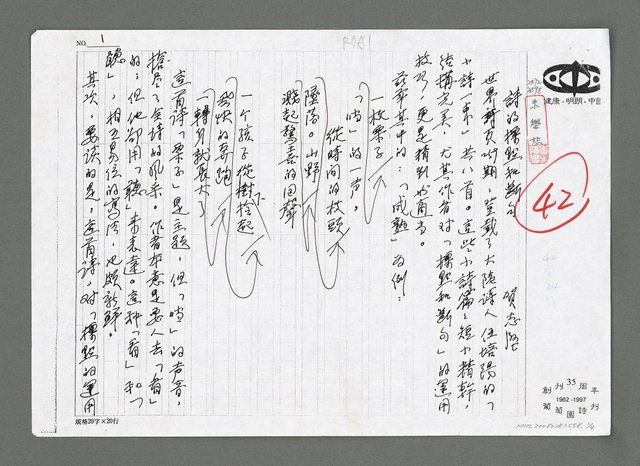 NO. 1
詩的標點和斷句
賀志堅
世界詩頁46期，登載了大陸詩人伍培陽的「
小詩一束」共八首。這些小詩篇篇短小精幹，
結構完美，尤其作者對「標點和斷句」的運用
技巧，更是精到出奇。
茲舉其中的：「成熟」為例：
一枚栗子
「啪」的一声。
從時間的枝頭
墜落。山野
濺起驚喜的回聲
一个孩子從樹下拾起
歡快的奔跑
轉身就長大了
這首詩「栗子」是主題，但「啪」的声音，
搶尽了全詩的風采。作者本意是要人去「看」
的；但他卻用「聽」來表達。這种「看」和「
聽」，相互易位的寫法，也頗新鮮。
其次，要談的是，這首詩，对「標點的運用
規格20字×20行
42
健康・明朗・中國
創刊35周年
1962-1997
葡萄園詩刊